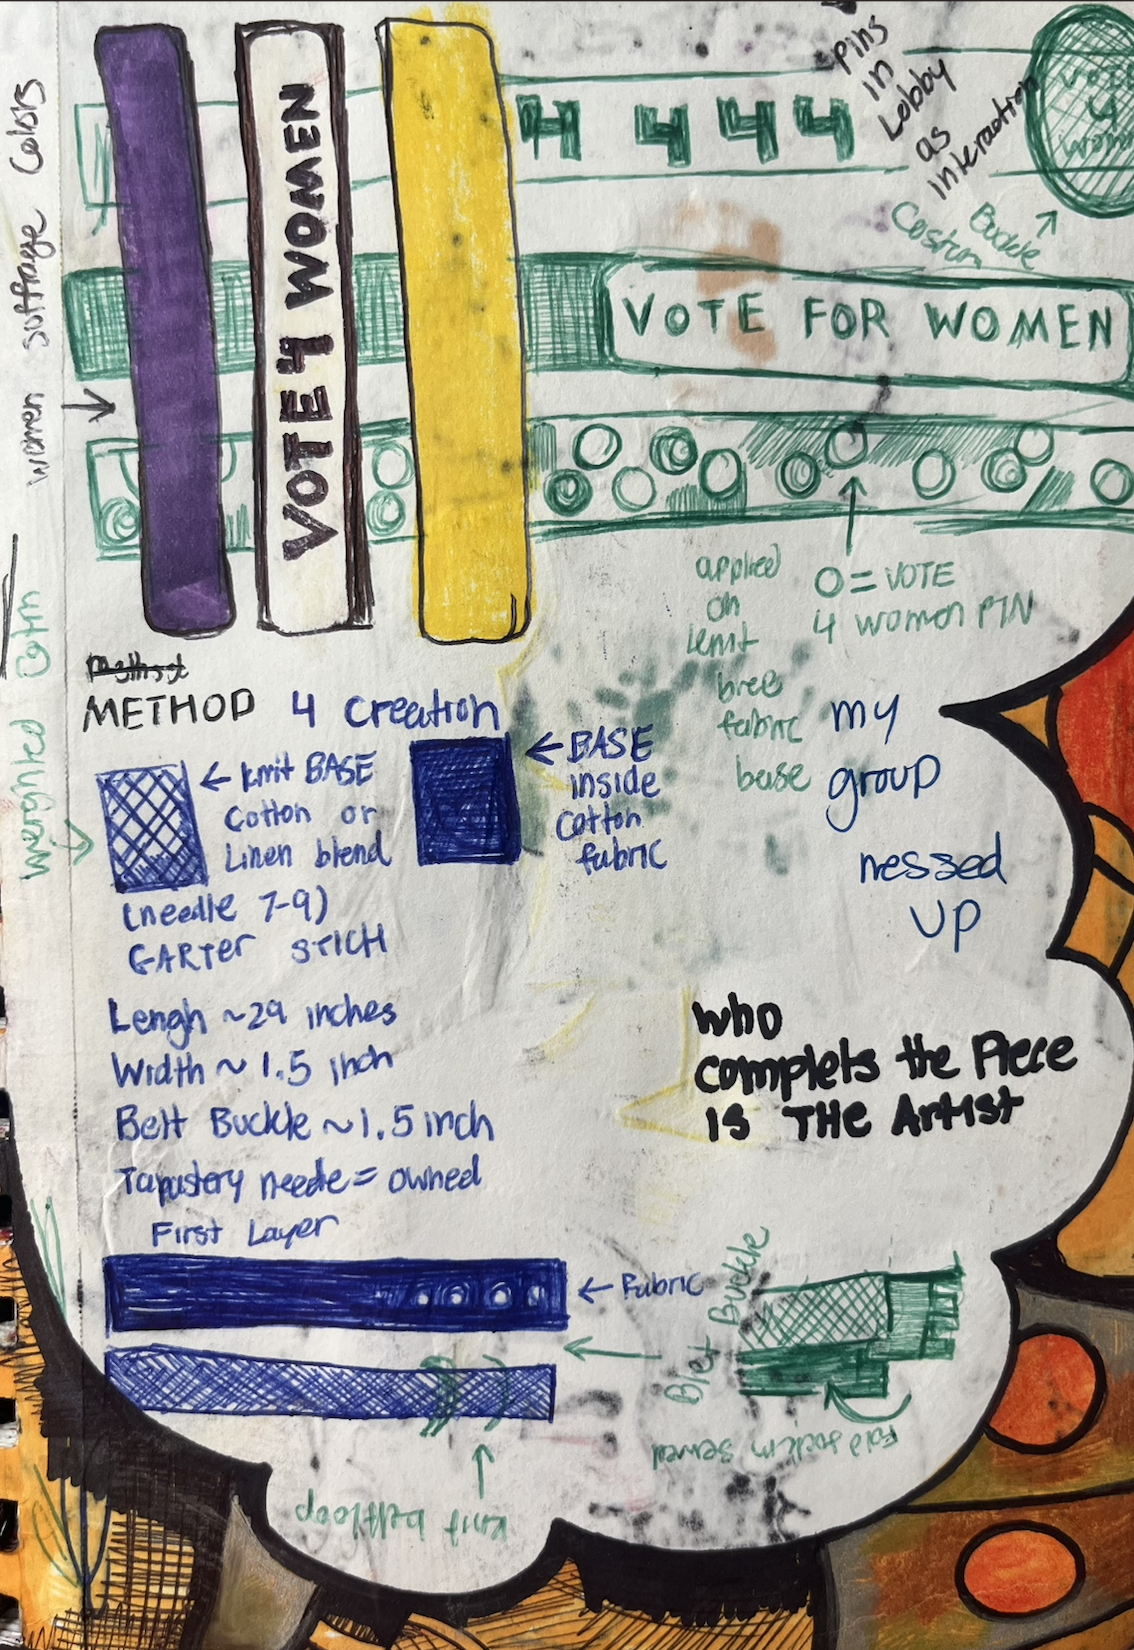 women suffrage Colors
VOTE 4 WOMEN
4 4 4 4
Pins
in
Lobby
as
interaction
VOTE
4
women
Custom
Buckle
VOTE FOR WOMEN
applied
on
knit
base
fabric
base
O = VOTE
4 women PIN
weighted
METHOD 4 Creation
← knit BASE
Cotton or
Linen blend
(needle 7-9)
GARTer STICH
← BASE
inside
Cotton
fabric
my
group
messed
UP
Lengh ~29 inches
Width ~ 1.5 inch
Belt Buckle ~1.5 inch
Tapastery needle = owned
First Layer
who
complets the Piece
is THe Artist
← Fabric
Blet Buckle
knit beltloop